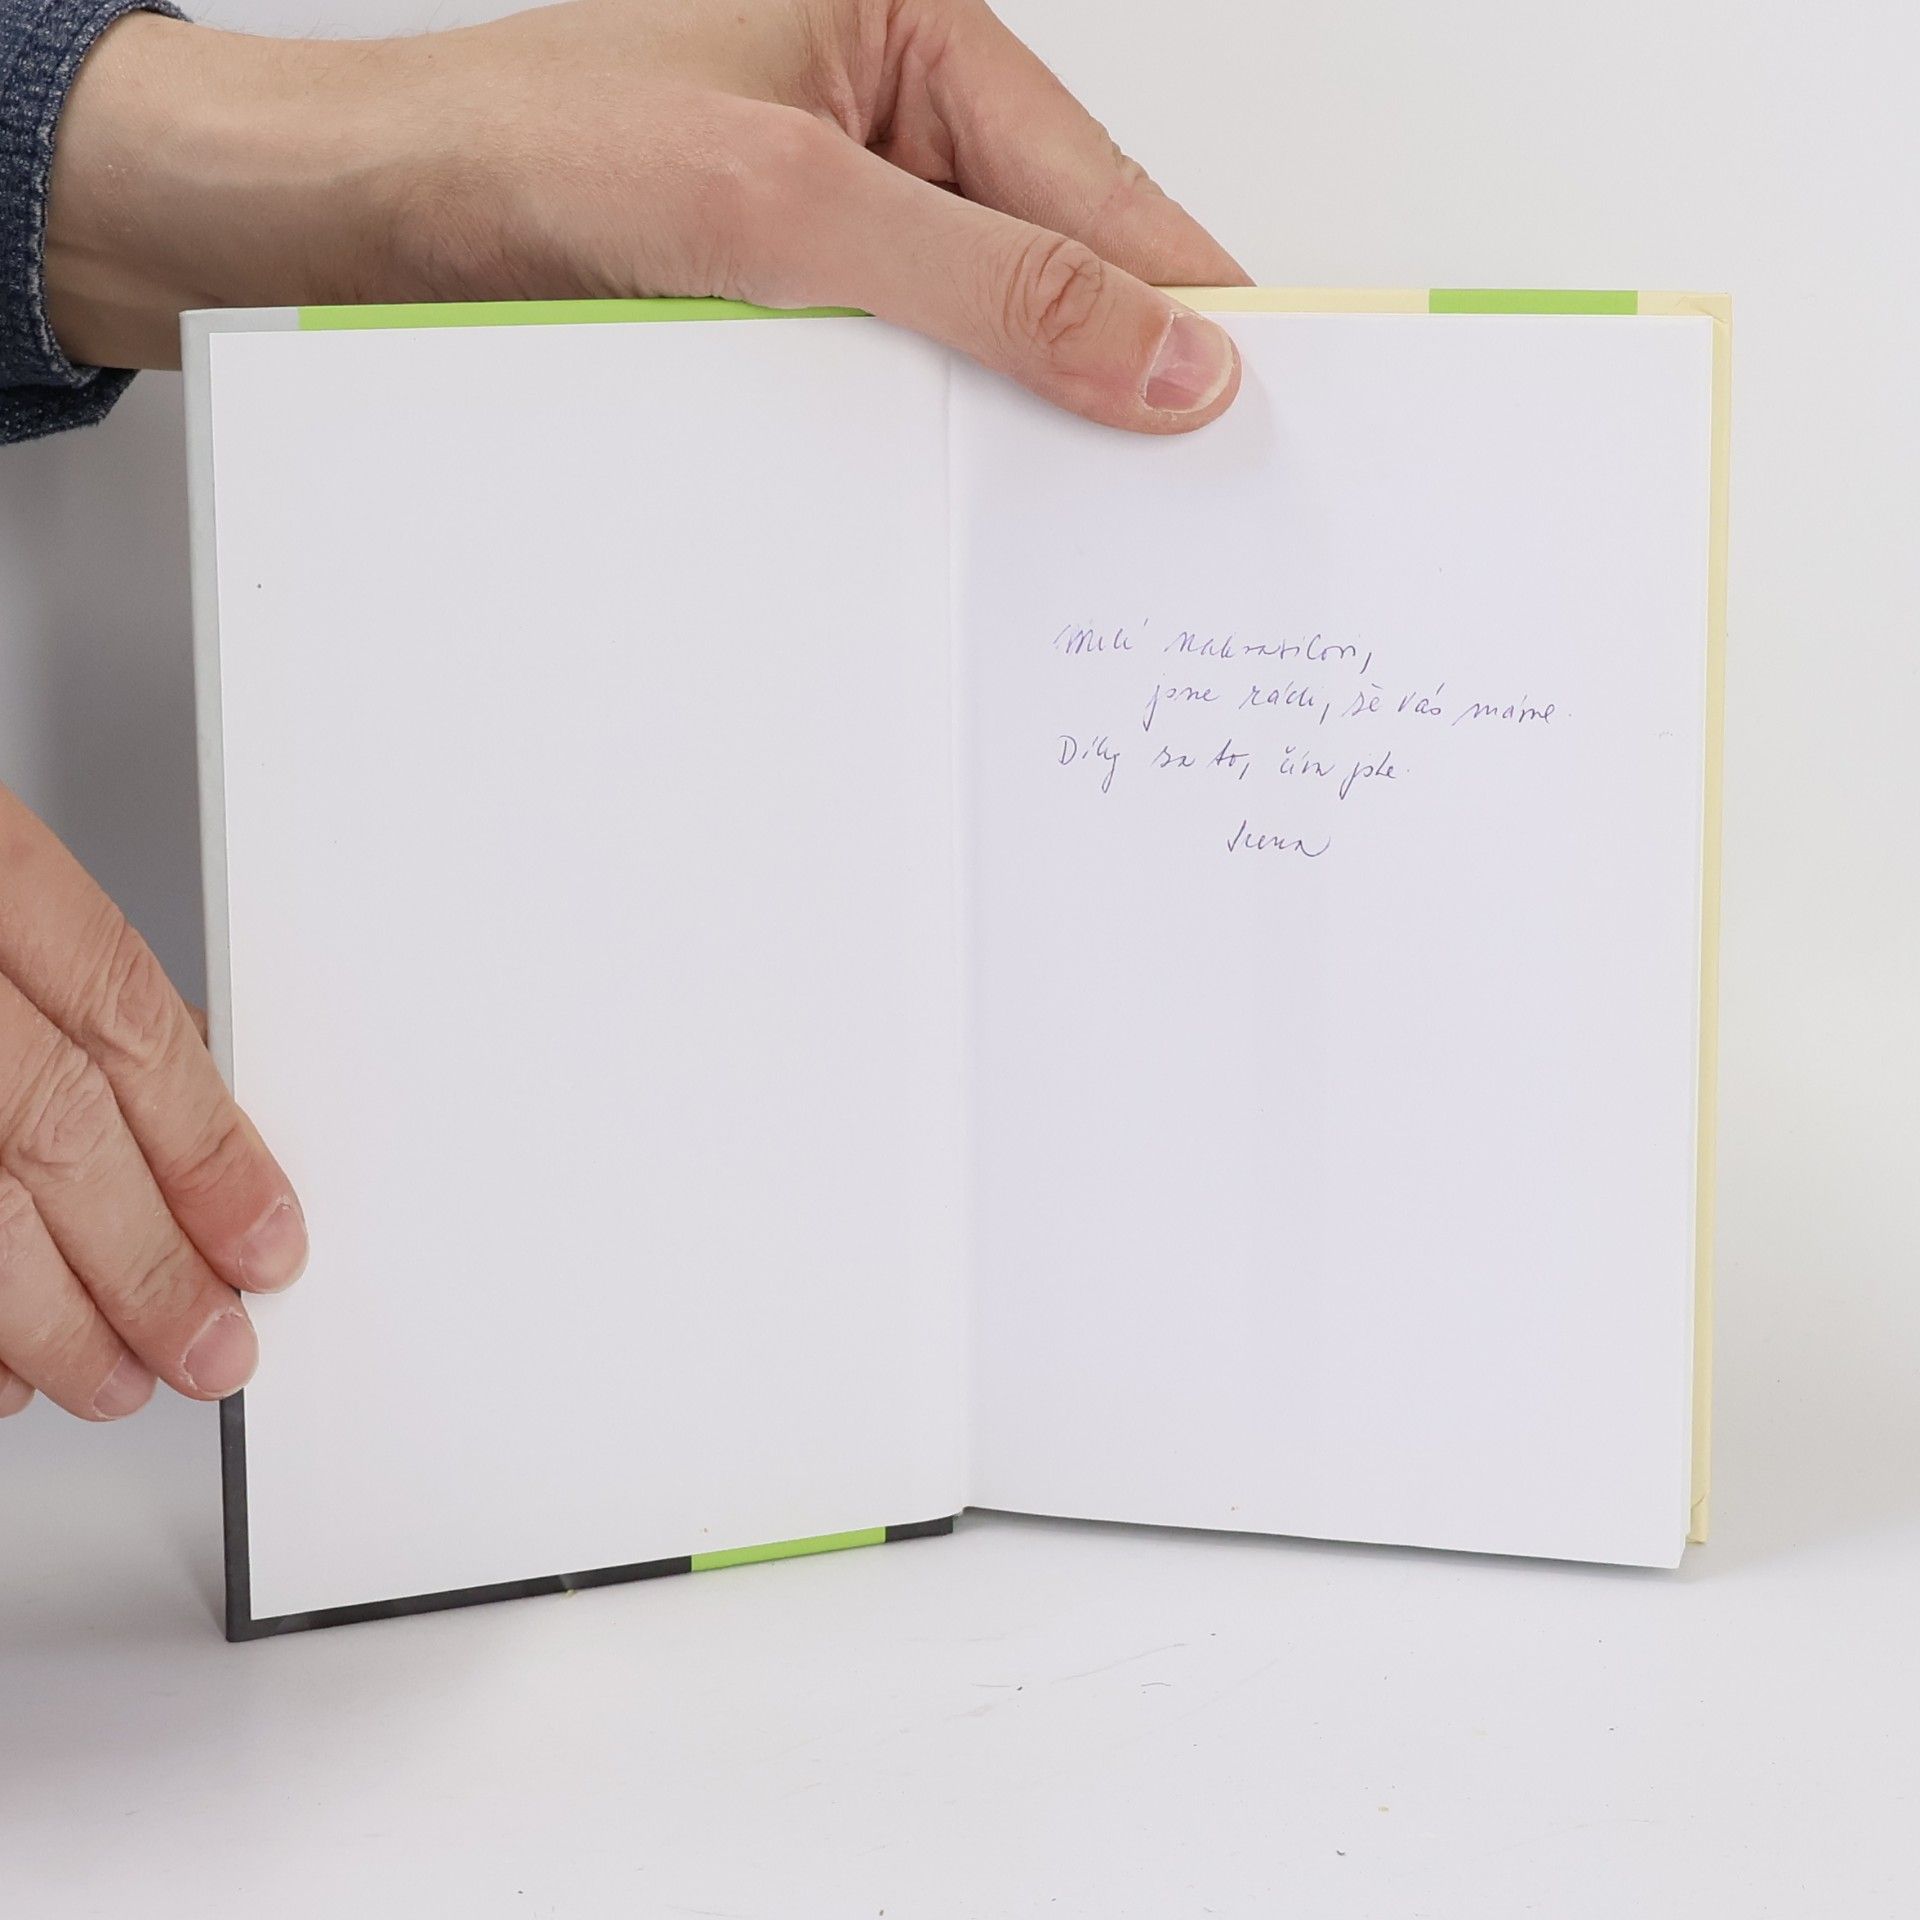 Milí Nakvasilovi,
jsme rádi, že vás máme.
Díky za to, čím jste.
Irena